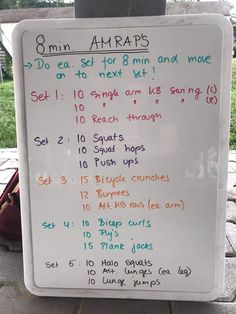 8 min AMRAP'S
→ Do ea. set for 8 min and move
on to next set!
Set 1: 10 Single arm KB Swing (L)
10 " " " " (R)
10 Reach through
Set 2: 10 Squats
10 Squat hops
10 Push ups
Set 3: 15 Bicycle crunches
12 Burpees
10 Alt. KB rows (ea arm)
Set 4: 10 Bicep curls
10 Fly's
15 Plank jacks
Set 5: 10 Halo squats
10 Alt lunges (ea leg)
10 Lunge jumps